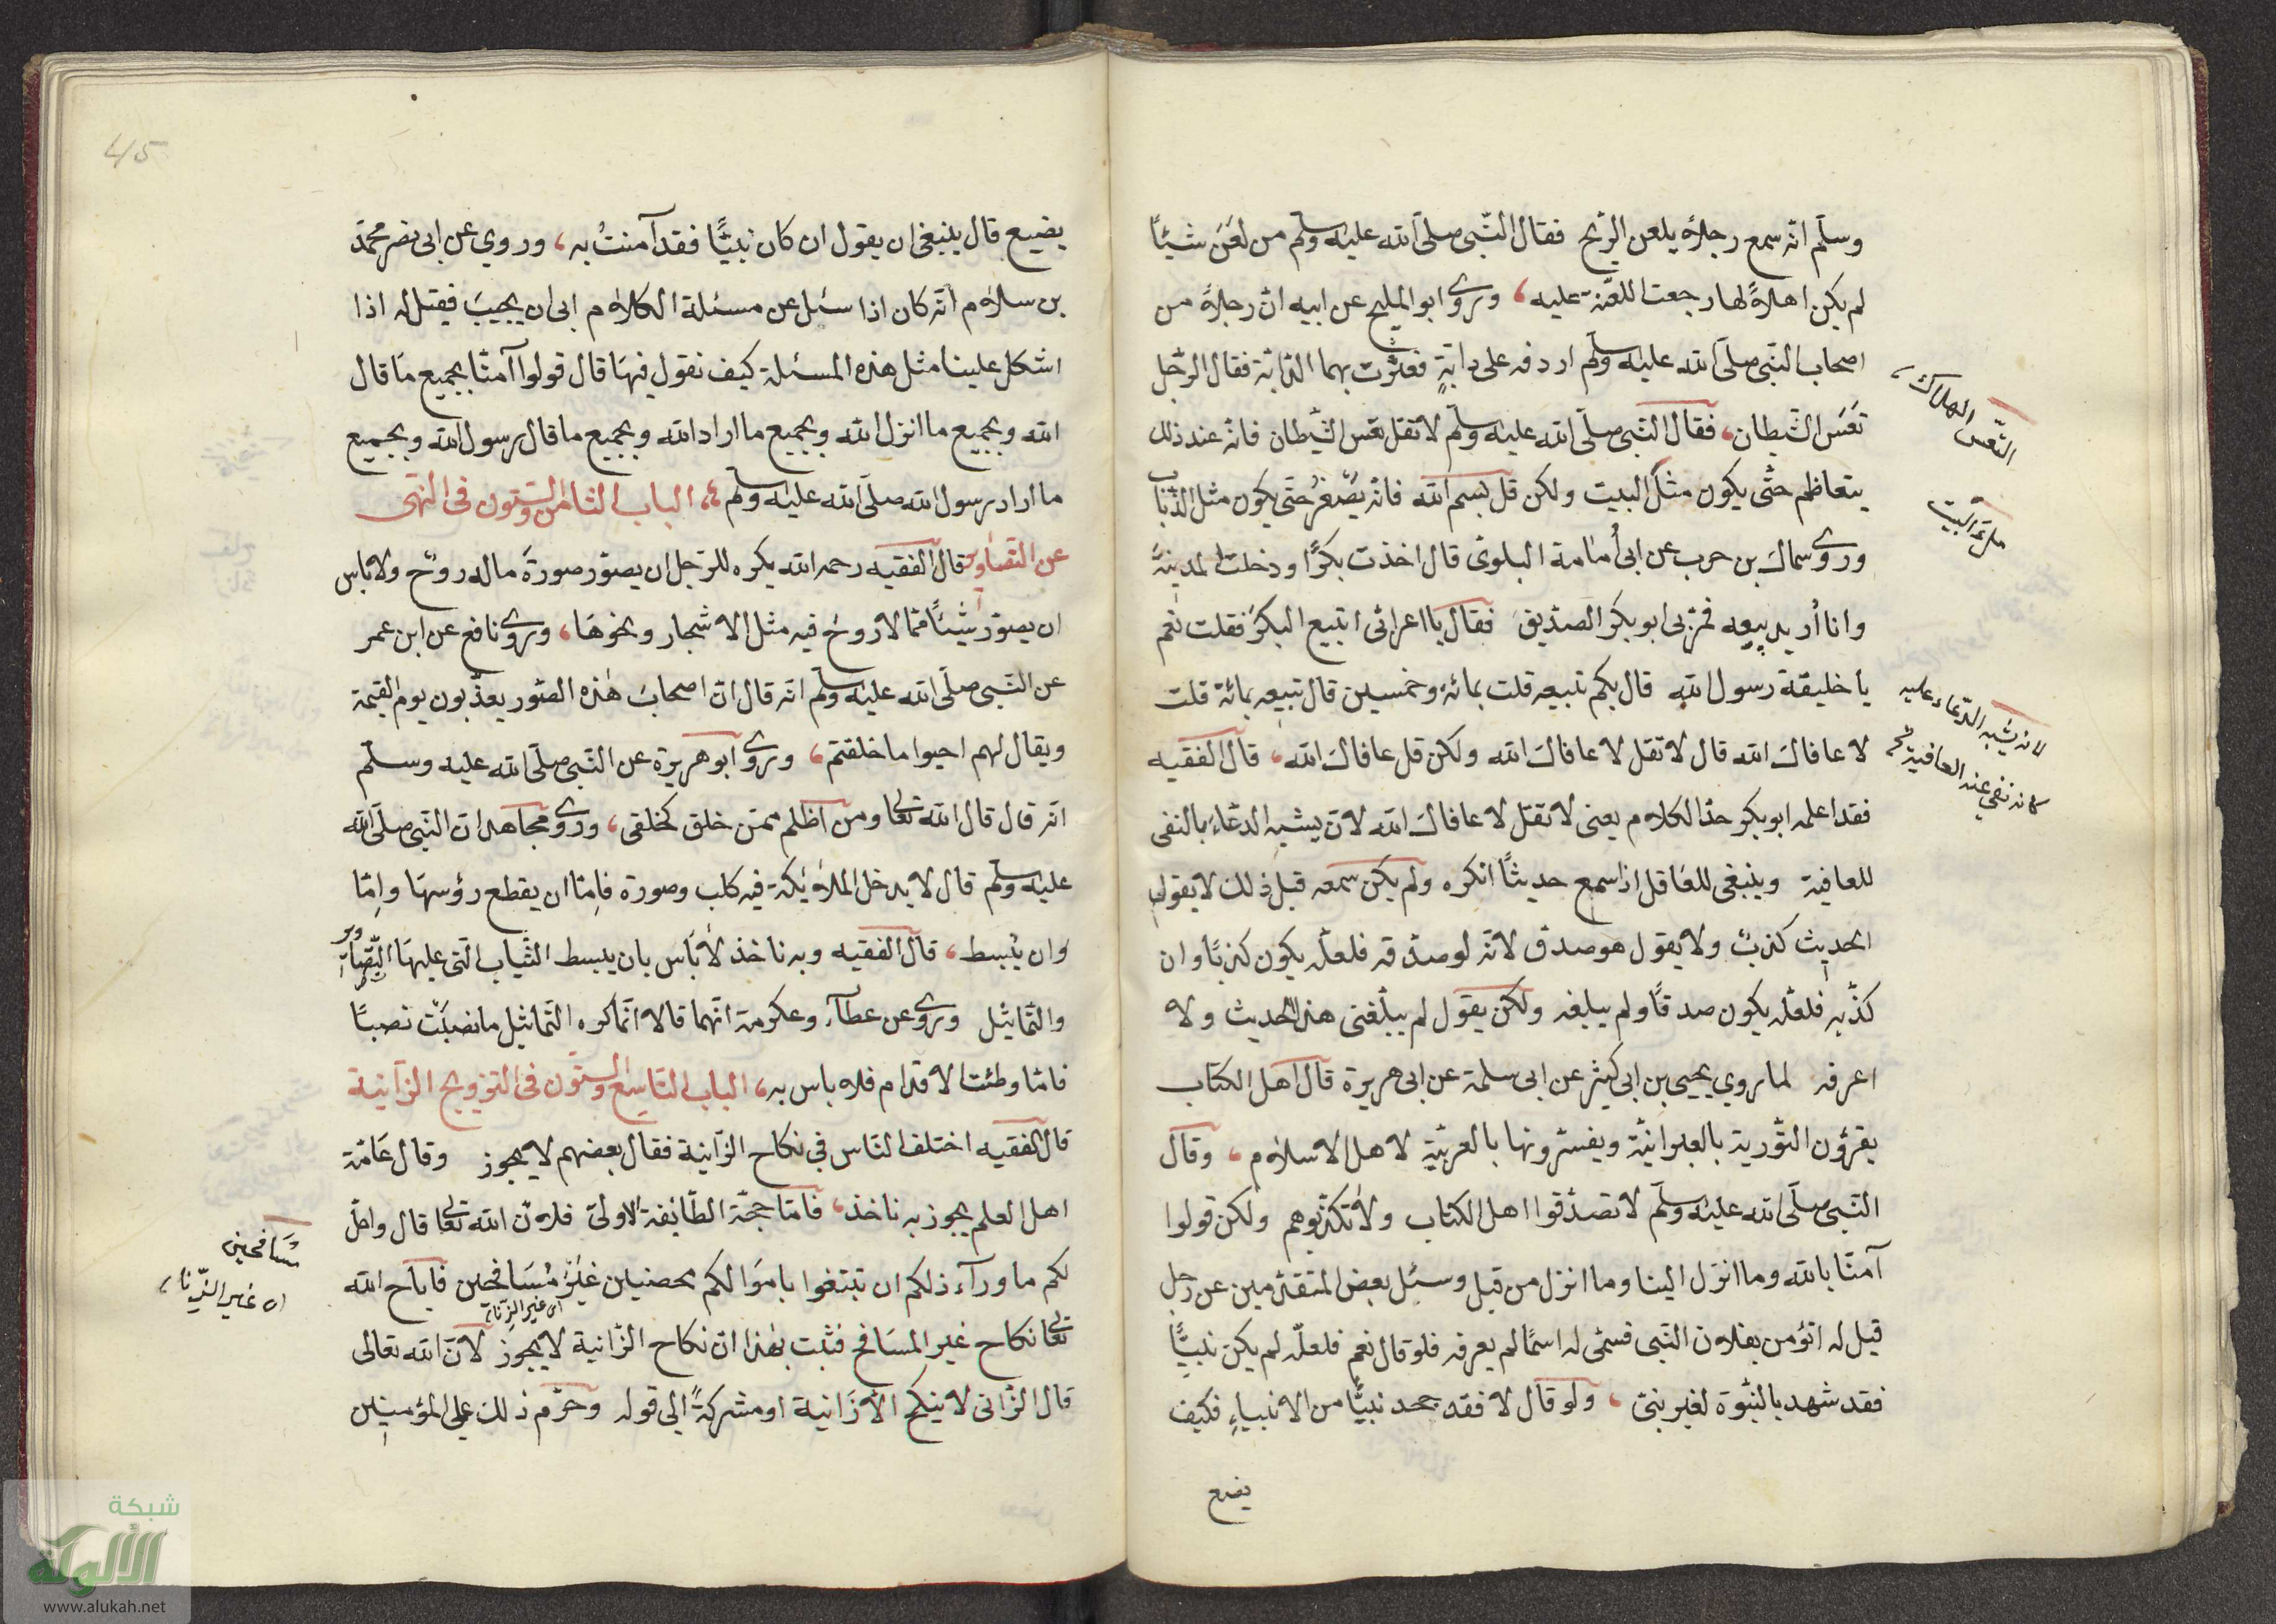 وسلّم انّه سمع رجلاً يلعن الرّيح فقال النّبي صلّى الله عليه وسلّم من لعَنَ شيئًا
لم يكن اهلاً لها رجعت اللعنة عليه، وروى ابو المليح عن ابيه انّ رجلاً من
اصحاب النّبي صلّى الله عليه وسلّم اردفه على دابّةٍ فعثرت بهما الدّابّة فقال الرّجل
تعَسَ الشّيطان، فقال النّبي صلّى الله عليه وسلّم لا تقل تعس الشّيطان فانّه عند ذلك
يتعاظم حتّى يكون مثلَ البيت ولكن قل بسم الله فانّه يصغرُ حتّى يكون مثل الذّباب
وروى سماك بن حرب عن ابى أمامة البلوى قال اخذت بكرًا ودخلت المدينةَ
وانا أريد بيعه فمرّ بى ابو بكر الصّديق فقال يا اعرابى اتبيع البكرَ فقلت نعم
يا خليفة رسول الله قال بكم تبيعه قلت بمائة وخمسين قال تبيعه بمائة قلت
لا عافاك الله قال لا تقل لا عافاك الله ولكن قل عافاك الله، قال الفقيه
فقد اعلمه ابو بكر حدّ الكلام يعنى لا تقل لا عافاك الله لانّ يشبه الدّعاءَ بالنفى
للعافية وينبغى للعاقل اذا سمع حديثًا انكره ولم يكن سمعه قبل ذلك لا يقول
الحديث كذبٌ ولا يقول هو صدق لانّه لو صدّقه فلعلّه يكون كذبًا وان
كذّبه فلعلّه يكون صدقًا ولم يبلغه ولكن يقول لم يبلغنى هذا الحديث ولا
اعرفه لما روي يحيى بن ابى كثير عن ابى سلمة عن ابى هريرة قال اهل الكتاب
يقرؤن التّورية بالعبرانيّة ويفسّرونها بالعربيّة لاهل الاسلام، وقال
النّبي صلّى الله عليه وسلّم لا تصدّقوا اهل الكتاب ولا تكذّبوهم ولكن قولوا
آمنّا بالله وما انزل الينا وما انزل من قبل وسئل بعض المتقدّمين عن رجل
قيل له اتؤمن بفلان النّبى فسمّى له اسمًا لم يعرفه فلو قال نعم فلعلّه لم يكن نبيًّا
فقد شهد بالنّبوّة لغير نبىّ، ولو قال لا فقد جحد نبيًّا من الانبياءِ فكيف
يضع
التّعس الهلاك
ملءَ البيت
لانه يشبه الدّعاء عليه
كانه نفى عنه العافية
يضيع قال ينبغى ان يقول ان كان نبيًّا فقد آمنتُ به، وروي عن ابى نصر محمّد
بن سلام انّه كان اذا سئل عن مسئلة الكلام ابى ان يجيبَ فيقيل له اذا
اشكل علينا مثل هذه المسئلة كيف نقول فيهَا قال قولوا آمنّا بجميع مَا قال
الله وبجميع ما انزل الله وبجميع ما اراد الله وبجميع ما قال رسول الله وبجميع
ما اراد رسول الله صلّى الله عليه وسلّم، الباب الثامن والستّون فى النّهى
عن التّصاوير قال الفقيه رحمه الله يكره للرّجل ان يصوّر صورةً ماله روحٌ ولا بأس
ان يصوّر شيئًا ممّا لا روحَ فيه مثل الاشجار ونحوهَا، وروى نافع عن ابن عمر
عن النّبى صلّى الله عليه وسلّم انه قال انّ اصحابَ هٰذه الصّور يعذّبون يوم القيمة
ويقال لهم احيوا ما خلقتم، وروى ابو هريرة عن النّبى صلّى الله عليه وسلّم
انّه قال قال الله تعالى ومن اظلم ممّن خلق كخلقى، وروى مجاهد ان النّبى صلّى الله
عليه وسلّم قال لا يدخل الملائكة فيه كلب وصورة فامّا ان يقطع رؤسهَا وامّا
وان يُبسط، قال الفقيه وبه ناخذ لا بأس بان يبسط الثّياب الّتى عليهَا التّصاوير
والتّماثيل وروى عن عطآء وعكرمة انّهما قالا انّما كره التّماثيل ما نصبت نصبًا
فامّا وطئت الاقدام فلا باس به، الباب التّاسع والستّون فى التزويج الزّانية
قال الفقيه اختلف النّاس في نكاح الزّانية فقال بعضهم لا يجوز وقال عَامّة
اهل العلم يجوز به ناخذ، فامّا حجّة الطّائفة الاولىٰ فلانّ الله تعالى قال واحلّ
لكم ما ورآء ذلكم ان تبتغوا باموَالكم محصنين غيرَ مُسَافحين فاباح الله
اى غير الزّناة
تعالى نكاح غير المسَافح فثبت بهٰذا انّ نكاح الزّانية لا يجوز لانّ الله تعالى
قال الزّانى لا ينكح الاّ زَانية او مشركةً الى قوله وحرّم ذلك على المؤمنين
مُسَافحين
اى غير الزّناة
45
شبكة
الألوكة
www.alukah.net